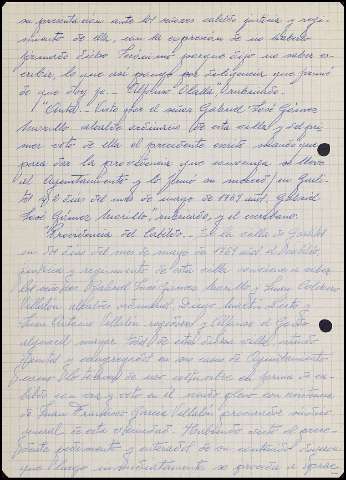 su presentacion ante los señores cabildo justicia y regi-
miento de ella, con la expresion de no haberse
firmado dicho Jerónimo porque dijo no saber es-
cribir, lo que asi pongo por diligencia que firmo
de que doy fe.- Alfonso
"Auto.- Visto por el señor Gabriel José Gómez
Murillo alcalde ordinario de esta villa y del pri-
mer voto de ella el precedente escrito mandó que
para dar la providencia que convenga se lleve
al Ayuntamiento y lo firmó su merced en
a dias del mes de marzo de 1769 años. Gabriel
José Gómez Murillo, rubricado, y el escribano.
Providencia del Cabildo.- En la villa de
en dias del mes de marzo de 1769 años el cabildo,
justicia y regimiento de esta villa conviene a saber
los señores Gabriel José Gómez Murillo y Juan
Villalón alcaldes ordinarios, Diego Martín
Juan Antonio Villalón regidores y Alfonso el
alguacil mayor todos de esta dicha villa, estando
juntos y congregados en sus casas de Ayuntamiento
como lo han de uso y costumbre en forma de ca-
bildo con voz y voto en el mismo pleno con asistencia
de Juan Francisco García Villalón procurador sindico
general de esta comunidad. Habiendo visto el prece-
dente pedimento y enterados de su contenido dijeron
que luego se proceda a